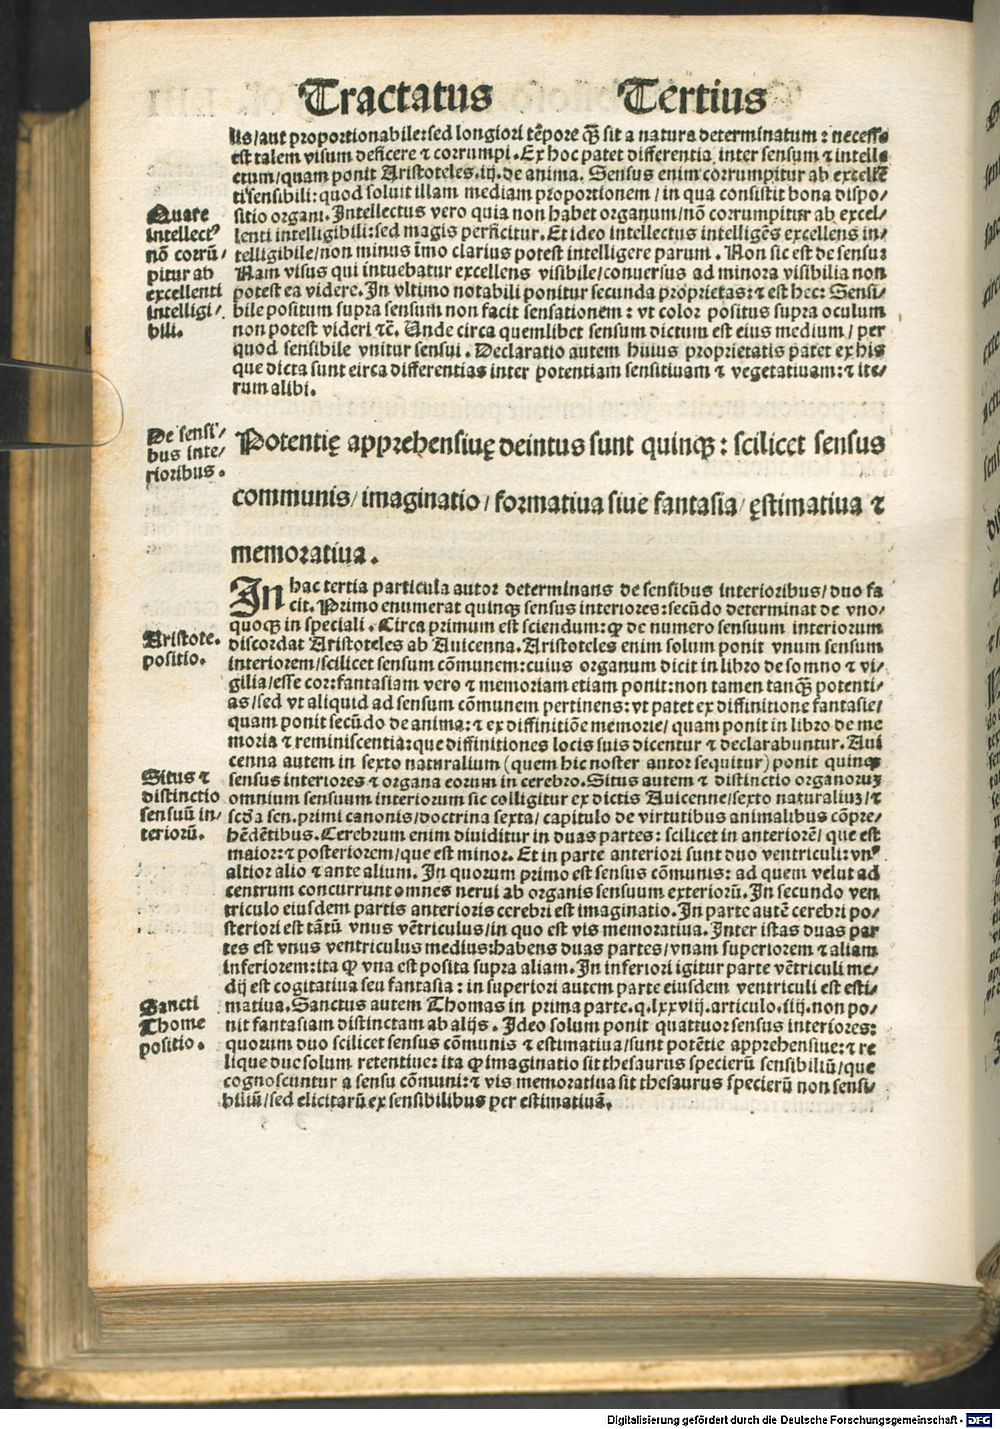 Tractatus Tertius
lis/aut proportionabile:sed longiori tēpore qͣ̄ sit a natura determinatum: necesse
est talem visum deficere ⁊ corrumpi. Ex hoc patet differentia inter sensum ⁊ intelle
ctum/quam ponit Aristoteles.iij.de anima. Sensus enim corrumpitur ab excellē
ti sensibili:quod soluit illam mediam proportionem/in qua consistit bona dispo/
sitio organi. Intellectus vero quia non habet organum/nō corrumpitur ab excel/
lenti intelligibili:sed magis perficitur. Et ideo intellectus intelligēs excellens in/
telligibile/non minus īmo clarius potest intelligere parum. Non sic est de sensu:
Nam visus qui intuebatur excellens visibile/conuersus ad minora visibilia non
potest ea videre. In vltimo notabili ponitur secunda proprietas:⁊ est hec: Sensi/
bile positum supra sensum non facit sensationem: vt color positus supra oculum
non potest videri ⁊c̄. Unde circa quemlibet sensum dictum est eius medium/ per
quod sensibile vnitur sensui. Declaratio autem huius proprietatis patet ex his
que dicta sunt circa differentias inter potentiam sensitiuam ⁊ vegetatiuam:⁊ ite/
rum alibi.
Quare
intellectꝰ
nō corrū/
pitur ab
excellenti
intelligi/
bili.
De sensi/
bus inte/
rioribus.
Potentię apprehensiuę deintus sunt quinqꝫ: scilicet sensus
communis/ imaginatio/ formatiua siue fantasia/ ęstimatiua ⁊
memoratiua.
In hac tertia particula autor determinans de sensibus interioribus/duo fa
cit. Primo enumerat quinqꝫ sensus interiores:secūdo determinat de vno/
quoqꝫ in speciali. Circa primum est sciendum:ꝙ de numero sensuum interiorum
discordat Aristoteles ab Auicenna. Aristoteles enim solum ponit vnum sensum
interiorem/scilicet sensum cōmunem:cuius organum dicit in libro de somno ⁊ vi/
gilia/esse cor:fantasiam vero ⁊ memoriam etiam ponit:non tamen tanqͣ̄ potenti/
as/sed vt aliquid ad sensum cōmunem pertinens:vt patet ex diffinitione fantasie/
quam ponit secūdo de anima:⁊ ex diffinitiōe memorie/quam ponit in libro de me
moria ⁊ reminiscentia:que diffinitiones locis suis dicentur ⁊ declarabuntur. Aui
cenna autem in sexto naturalium (quem hic noster autor sequitur) ponit quinqꝫ
sensus interiores ⁊ organa eorum in cerebro. Situs autem ⁊ distinctio organoruꝫ
omnium sensuum interiorum sic colligitur ex dictis Auicenne/sexto naturaliuꝫ/⁊
scd̄a fen.primi canonis/doctrina sexta/capitulo de virtutibus animalibus cōpre/
hēdētibus. Cerebrum enim diuiditur in duas partes: scilicet in anteriorē/ que est
maior:⁊ posteriorem/que est minor. Et in parte anteriori sunt duo ventriculi: vnꝰ
altior alio ⁊ ante alium. In quorum primo est sensus cōmunis: ad quem velut ad
centrum concurrunt omnes nerui ab organis sensuum exteriorū. In secundo ven
triculo eiusdem partis anterioris cerebri est imaginatio. In parte autē cerebri po/
steriori est tātū vnus vētriculus/in quo est vis memoratiua. Inter istas duas par
tes est vnus ventriculus medius:habens duas partes/vnam superiorem ⁊ aliam
inferiorem:ita ꝙ vna est posita supra aliam. In inferiori igitur parte vētriculi me/
dij est cogitatiua seu fantasia: in superiori autem parte eiusdem ventriculi est esti/
matiua. Sanctus autem Thomas in prima parte.q.lxxviij.articulo.iiij.non po/
nit fantasiam distinctam ab alijs. Ideo solum ponit quattuor sensus interiores:
quorum duo scilicet sensus cōmunis ⁊ estimatiua/sunt potētie apprehensiue:⁊ re
lique due solum retentiue: ita ꝙ imaginatio sit thesaurus specierū sensibiliū/que
cognoscuntur a sensu cōmuni:⁊ vis memoratiua sit thesaurus specierū non sensi/
biliū/sed elicitarū ex sensibilibus per estimatiuā.
Aristote.
positio.
Situs ⁊
distinctio
sensuū in/
teriorū.
Sancti
Thome
positio.
Digitalisierung gefördert durch die Deutsche Forschungsgemeinschaft - DFG